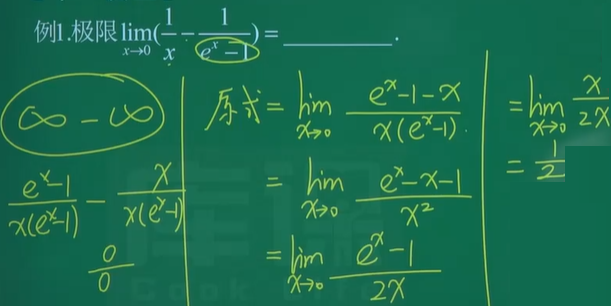 例1.极限lim(x→0)(1/x - 1/(e^x - 1)) = ________.
∞ - ∞
(e^x-1)/(x(e^x-1)) - x/(x(e^x-1))
0/0
原式 = lim(x→0) (e^x-1-x)/(x(e^x-1)).
= lim(x→0) (e^x-x-1)/x^2
= lim(x→0) (e^x-1)/2x
= lim(x→0) x/2x
= 1/2